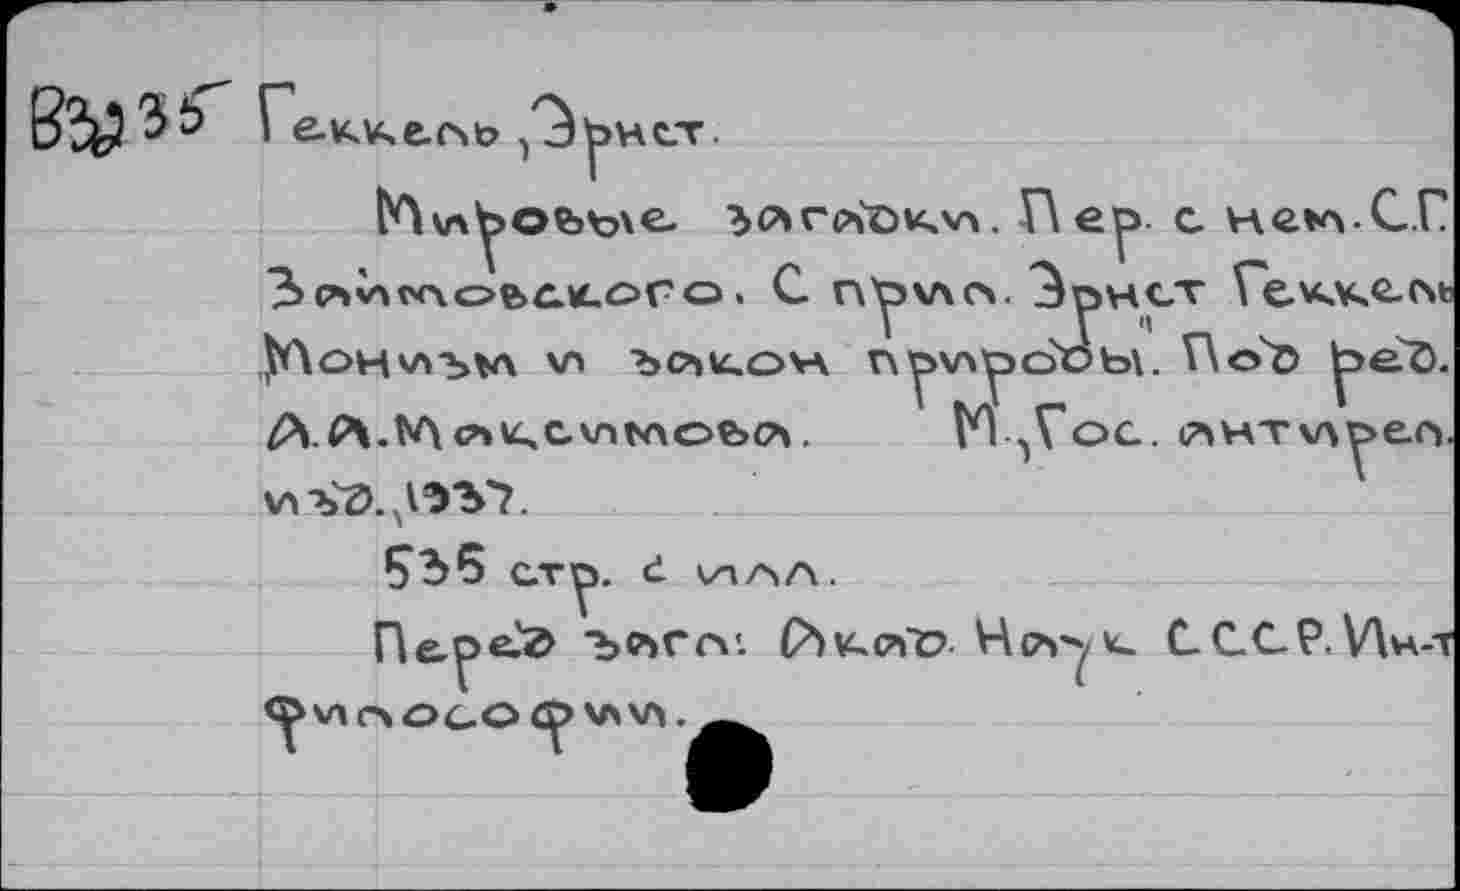 Геккель, Эрнст.
Мировые загадки. Пер. с нем. С.Г.
Займовского. С прил. Эрнст Геккель
"Монизм и закон природы". Под ред.
А.А. Максимова. М., Гос. антирел.
изд., 1937.
535 стр. с илл.
Перед загл: Акад. Наук СССР. Ин-т
философии.